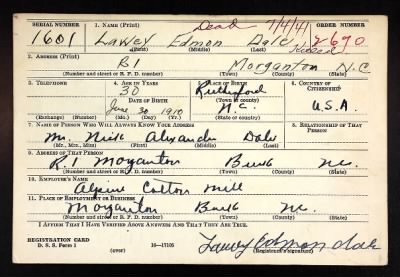 SERIAL NUMBER 1. NAME (Print) Dead 7/4/41 ORDER NUMBER
1601 Lawey Edmon Dale 2690
(First) (Middle) (Last)
2. ADDRESS (Print)
R1 Morganton N.C.
(Number and street or R. F. D. number) (Town) (County) (State)
3. TELEPHONE 4. AGE IN YEARS 5. PLACE OF BIRTH 6. COUNTRY OF CITIZENSHIP
30 Rutherford
DATE OF BIRTH (Town or county)
June 30 1910 N.C. U.S.A.
(Exchange) (Number) (Mo.) (Day) (Yr.) (State or country)
7. NAME OF PERSON WHO WILL ALWAYS KNOW YOUR ADDRESS 8. RELATIONSHIP OF THAT PERSON
Mr. Nick Alexander Dale
(Mr., Mrs., Miss) (First) (Middle) (Last)
9. ADDRESS OF THAT PERSON
R.1 Morganton Burk N.C.
(Number and street or R. F. D. number) (Town) (County) (State)
10. EMPLOYER'S NAME
Alpine Cotton Mill
11. PLACE OF EMPLOYMENT OR BUSINESS
Morganton Burk N.C.
(Number and street or R. F. D. number) (Town) (County) (State)
I AFFIRM THAT I HAVE VERIFIED ABOVE ANSWERS AND THAT THEY ARE TRUE.
REGISTRATION CARD
D. S. S. Form 1 (over) 16—17105 Lawey Edmon Dale
(Registrant's signature)